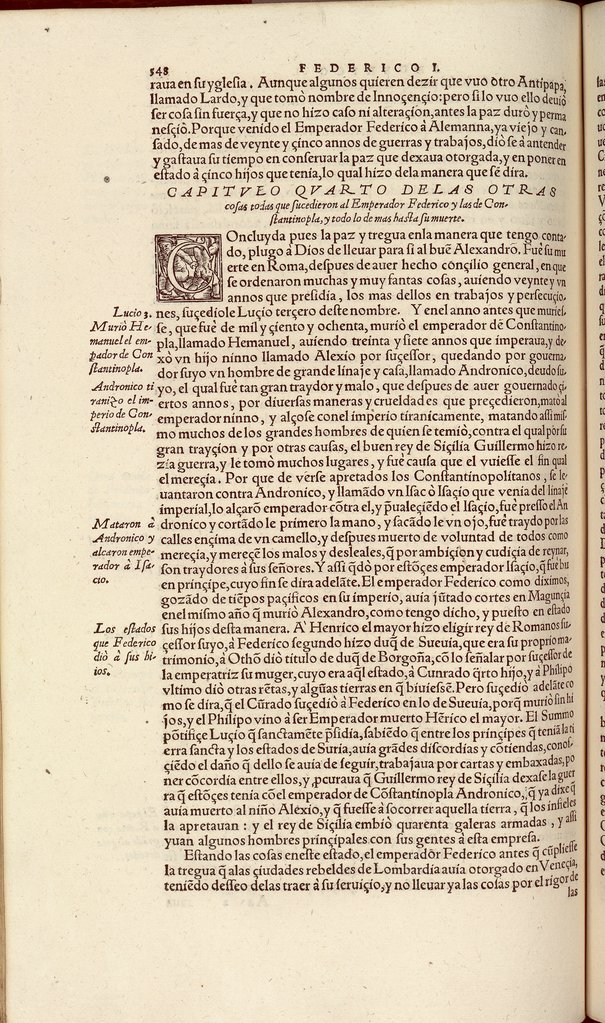 548
FEDERICO I.
raua en su yglesia. Aunque algunos quieren dezir que vuo otro Antipapa,
llamado Lardo, y que tomò nombre de Innoçençio: pero si lo vuo ello deuiò
ser cosa sin fuerça, y que no hizo caso ni alteraçion, antes la paz durò y perma
nesçiò. Porque venido el Emperador Federico à Alemanna, ya viejo y can-
sado, de mas de veynte y çinco annos de guerras y trabajos, diò se à antender
y gastaua su tiempo en conseruar la paz que dexaua otorgada, y en poner en
estado à çinco hijos que tenia, lo qual hizo dela manera que sè dira.
CAPITVLO QVARTO DE LAS OTRAS
cosas todas que sucedieron al Emperador Federico y las de Con-
stantinopla, y todo lo de mas hasta su muerte.
COncluyda pues la paz y tregua enla manera que tengo conta-
do, plugo à Dios de lleuar para si al buẽ Alexandro. Fuè su mu
erte en Roma, despues de auer hecho cònçilio general, en que
se ordenaron muchas y muy santas cosas, auiendo veynte y vn
annos que presidia, los mas dellos en trabajos y persecuçio-
nes, suçediole Luçio terçero deste nombre. Y enel anno antes que muries-
se, que fuè de mil y çiento y ochenta, muriò el emperador dẽ Constantino-
pla, llamado Hemanuel, auiendo treinta y siete annos que imperaua, y de-
xò vn hijo ninno llamado Alexio por suçessor, quedando por gouerna-
dor suyo vn hombre de grande linaje y casa, llamado Andronico, deudo su-
yo, el qual fuè tan gran traydor y malo, que despues de auer gouernado çi-
ertos annos, por diuersas maneras y crueldades que preçedieron, matò al
emperador ninno, y alçose conel imperio tiranicamente, matando assi mis-
mo muchos de los grandes hombres de quien se temiò, contra el qual por su
gran trayçion y por otras causas, el buen rey de Siçilia Guillermo hizo re-
zia guerra, y le tomò muchos lugares, y fuè causa que el vuiesse el fin qual
el mereçia. Por que de verse apretados los Constantinopolitanos, se le-
uantaron contra Andronico, y llamãdo vn Isac ò Isaçio que venia del linaje
imperial, lo alçarõ emperador cõtra el, y p̃ualeçiẽdo el Isaçio, fuè presso el An
dronico y cortãdo le primero la mano, y sacãdo le vn ojo, fuè traydo por las
calles ençima de vn camello, y despues muerto de voluntad de todos como
mereçia, y mereçẽ los malos y desleales, q̃ por ambiçion y cudiçia de reynar,
son traydores à sus señores. Y assi q̃dò por estõçes emperador Isaçio, q̃ fuè bu
en prinçipe, cuyo fin se dira adelãte. El emperador Federico como diximos,
gozãdo de tiẽpos paçificos en su imperio, auia jũtado cortes en Magunçia
enel mismo año q̃ muriò Alexandro, como tengo dicho, y puesto en estado
sus hijos desta manera. A Henrico el mayor hizo eligir rey dẽ Romanos su-
çessor suyo, à Federico segundo hizo duq̃ de Sueuia, que era su proprio ma-
trimonio, à Othõ diò titulo de duq̃ de Borgoña, cõ lo señalar por suçessor de
la emperatriz su muger, cuyo era aq̃l estado, à Cunrado q̃rto hijo, y à Philipo
vltimo diò otras rẽtas, y algũas tierras en q̃ biuiesse. Pero suçediò adelãte co
mo se dira, q̃ el Cũrado suçediò à Federico en lo de Sueuia, porq̃ muriò sin hi
jos, y el Philipo vino à ser Emperador muerto Hẽrico el mayor. El Summo
põtifiçe Luçio q̃ sanctamẽte p̃sidia, sabiẽdo q̃ entre los prinçipes q̃ teniã la ti
erra sancta y los estados de Suria, auia grãdes discordias y cõtiendas, conos-
çiẽdo el daño q̃ dello se auia de seguir, trabajaua por cartas y embaxadas, po
ner cõcordia entre ellos, y p̱curaua q̃ Guillermo rey de Siçilia dexasse la guer
ra q̃ estõçes tenia cõel emperador de Cõstantinopla Andronico, q̃ ya dixe q̃
auia muerto al niño Alexio, y q̃ fuesse à socorrer aquella tierra, q̃ los infieles
la apretauan: y el rey de Siçilia embiò quarenta galeras armadas, y assi
yuan algunos hombres prinçipales con sus gentes à esta empresa.
Estando las cosas eneste estado, el emperador Federico antes q̃ cũpliesse
la tregua q̃ alas çiudades rebeldes de Lombardia auia otorgado en Veneçia,
teniẽdo desseo delas traer à su seruiçio, y no lleuar ya las cosas por el rigor de
las
Lucio 3.
Muriò He-
manuel el em-
pador de Con
stantinopla.
Andronico ti
ranizo el im-
perio de Con-
stantinopla.
Mataron à
Andronico y
alcaron empe-
rador à Isa-
cio.
Los estados
que Federico
diò à sus hi-
ios.